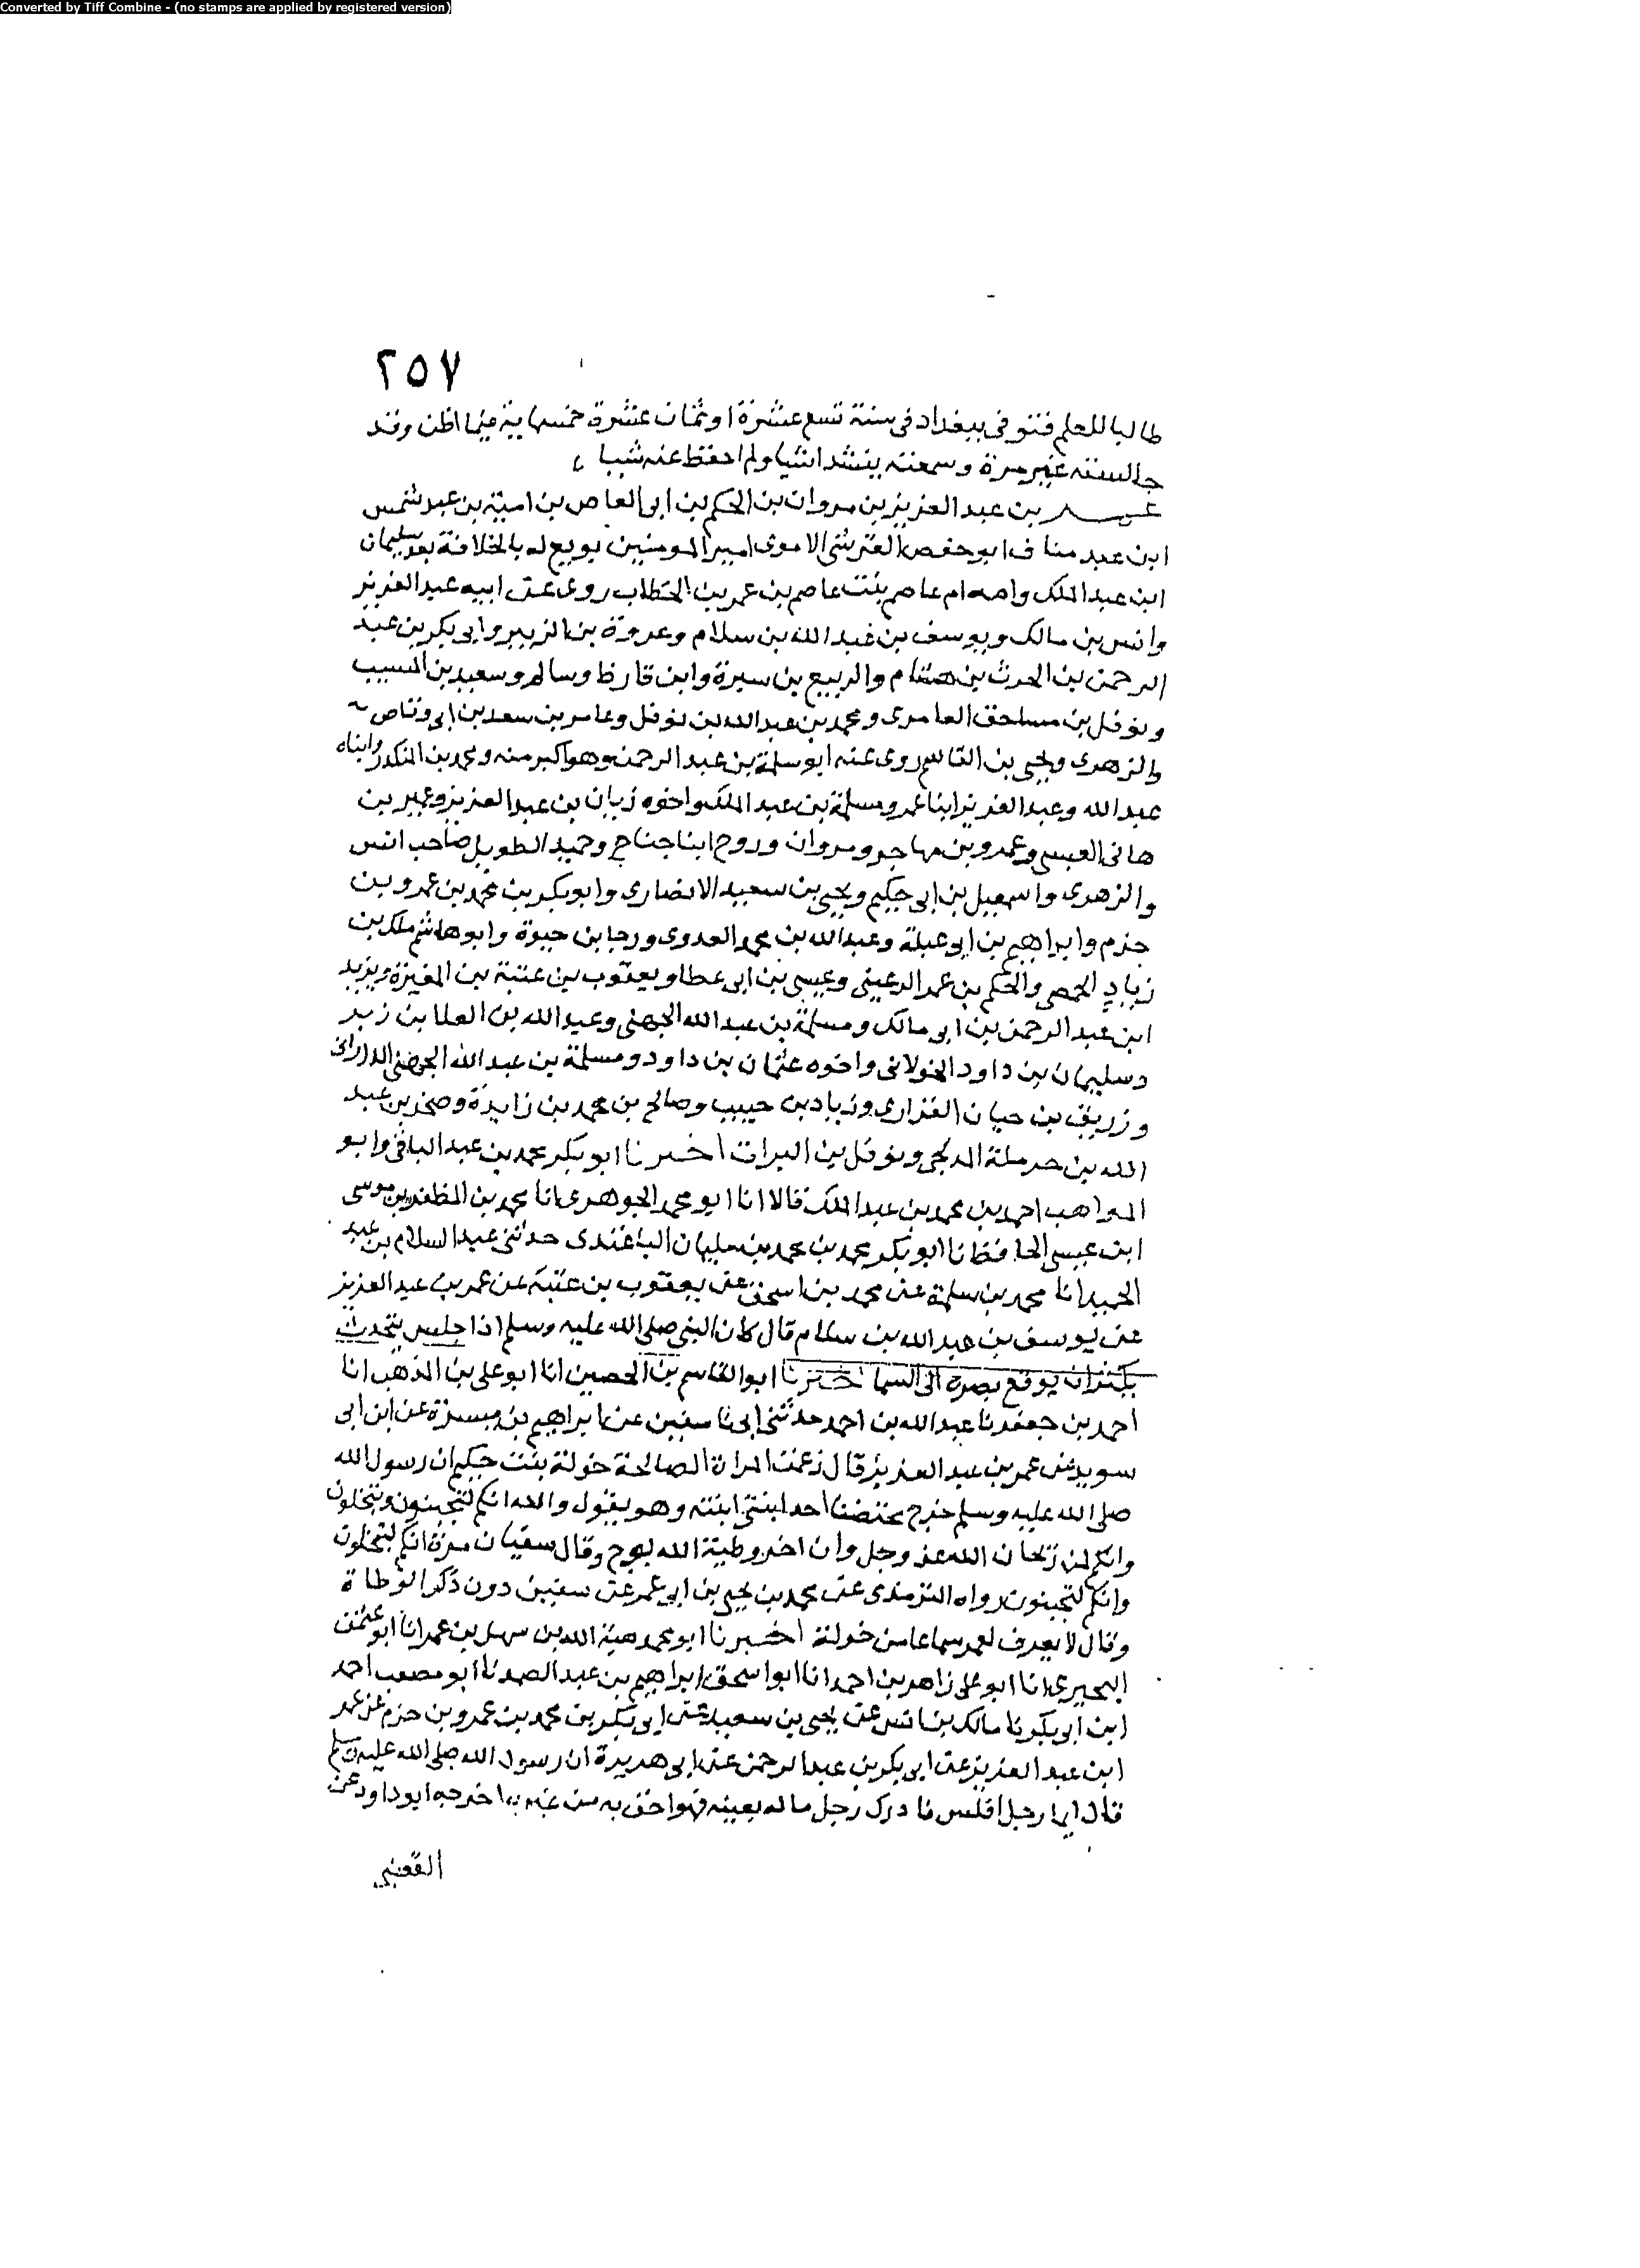 Converted by Tiff Combine - (no stamps are applied by registered version)
٢٥٧
طالبا للعلم فتوفي ببغداد في سنة تسع عشرة او ثمان عشرة خمسماية فيما اظن وقد
جالسته غير مرة وسمعته ينشد اشيا ولم احفظ عنه شيا
عمر بن عبد العزيز بن مروان بن الحكم بن ابي العاص بن امية بن عبد شمس
ابن عبد مناف ابو حفص القرشي الاموي امير المومنين بويع له بالخلافة بعد سليمان
ابن عبد الملك وامه ام عاصم بنت عاصم بن عمر بن الخطاب روى عن ابيه عبد العزيز
وانس بن مالك ويوسف بن عبد الله بن سلام وعروة بن الزبير وابي بكر بن عبد
الرحمن بن الحرث بن هشام والربيع بن سبرة وابن قارظ وسالم وسعيد بن المسيب
ونوفل بن مساحق العامري ومحمد بن عبد الله بن نوفل وعامر بن سعد بن ابي وقاص
والزهري ويحيى بن القاسم روى عنه ابو سلمة بن عبد الرحمن وهو اكبر منه ومحمد بن المنكدر وابناه
عبد الله وعبد العزيز ابنا عمر ومسلمة بن عبد الملك واخوه زبان بن عبد العزيز وعمير بن
هاني العبسي وعمرو بن مهاجر ومروان وروح ابنا جناح وحميد الطويل صاحب انس
والزهري واسمعيل بن ابي حكيم ويحيى بن سعيد الانصاري وابو بكر بن محمد بن عمرو بن
حزم وابراهيم بن ابي عبلة وعبد الله بن محمد العدوي ورجا بن حيوة وابو هاشم ملك بن
زياد الحمصي والحكم بن عمر الرعيني وعيسى بن ابي عطا ويعقوب بن عتبة بن المغيرة ويزيد
ابن عبد الرحمن بن ابي مالك ومسلمة بن عبد الله الجهني وعبد الله بن العلا بن زبر
وسليمان بن داود الخولاني واخوه عثمان بن داود ومسلمة بن عبد الله الجهني الداراني
وزريق بن حيان الفزاري وزياد بن حبيب وصالح بن محمد بن زايدة وصخر بن عبد
الله بن حرملة المدلجي ونوفل بن الفرات اخبرنا ابو بكر محمد بن عبد الباقي وابو
المواهب احمد بن محمد بن عبد الملك قالا انا ابو محمد الجوهري انا محمد بن المظفر بن موسى
ابن عيسى الحافظ نا ابو بكر محمد بن محمد بن سليمان الباغندي حدثني عبد السلام بن عبد
الحميد انا محمد بن سلمة عن محمد بن اسحق عن يعقوب بن عتبة عن عمر بن عبد العزيز
عن يوسف بن عبد الله بن سلام قال كان النبي صلى الله عليه وسلم اذا جلس يتحدث
يكثر ان يرفع بصره الى السما اخبرنا ابو القاسم بن الحصين انا ابو علي بن المذهب انا
احمد بن جعفر نا عبد الله بن احمد حدثني ابي نا سفين عن ابراهيم بن ميسرة عن ابن ابي
سويد عن عمر بن عبد العزيز قال زعمت المراة الصالحة خولة بنت حكيم ان رسول الله
صلى الله عليه وسلم خرج محتضنا احد ابني ابنته وهو يقول والله انكم لتجبنون وتبخلون
وانكم لمن ريحان الله عز وجل وان اخر وطية الله بوج وقال سفيان مرة انكم لتبخلون
وانكم لتجبنون رواه الترمذي عن محمد بن يحيى بن ابي عمر عن سفين دون ذكر الوطاة
وقال لا يعرف لعمر سماعا من خولة اخبرنا ابو محمد هبة الله بن سهل بن عمر انا ابو عثمن
البحيري انا ابو علي زاهر بن احمد انا ابو اسحق ابراهيم بن عبد الصمد نا ابو مصعب احمد
ابن ابي بكر نا مالك بن انس عن يحيى بن سعيد عن ابي بكر بن محمد بن عمرو بن حزم عن عمر
ابن عبد العزيز عن ابي بكر بن عبد الرحمن عن ابي هريرة ان رسول الله صلى الله عليه وسلم
قال ايما رجل افلس فادرك رجل ماله بعينه فهو احق به من غيره اخرجه ابو داود عن
القعنبي